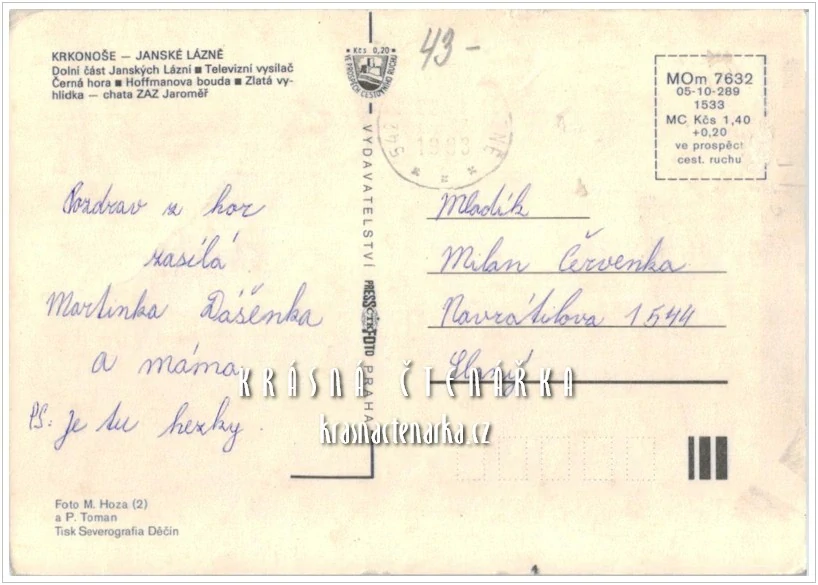 KRKONOŠE — JANSKÉ LÁZNĚ
Dolní část Janských Lázní ■ Televizní vysílač
Černá hora ■ Hoffmanova bouda ■ Zlatá vy-
hlídka — chata ZAZ Jaroměř
Pozdrav z hor
zasílá
Martinka Dášenka
a máma
PS: Je tu hezky.
Foto M. Hoza (2)
a P. Toman
Tisk Severografia Děčín
Kčs 0,20
VE PROSPĚCH CESTOVNÍHO RUCHU
VYDAVATELSTVÍ PRESSFOTO PRAHA
ČTK
43-
1983
MOm 7632
05-10-289
1533
MC Kčs 1,40
+0,20
ve prospěch
cest. ruchu
Mladík
Milan Červenka
Navrátilova 1544
Slaný
KRÁSNÁ ČTENÁŘKA
krasnactenarka.cz
4